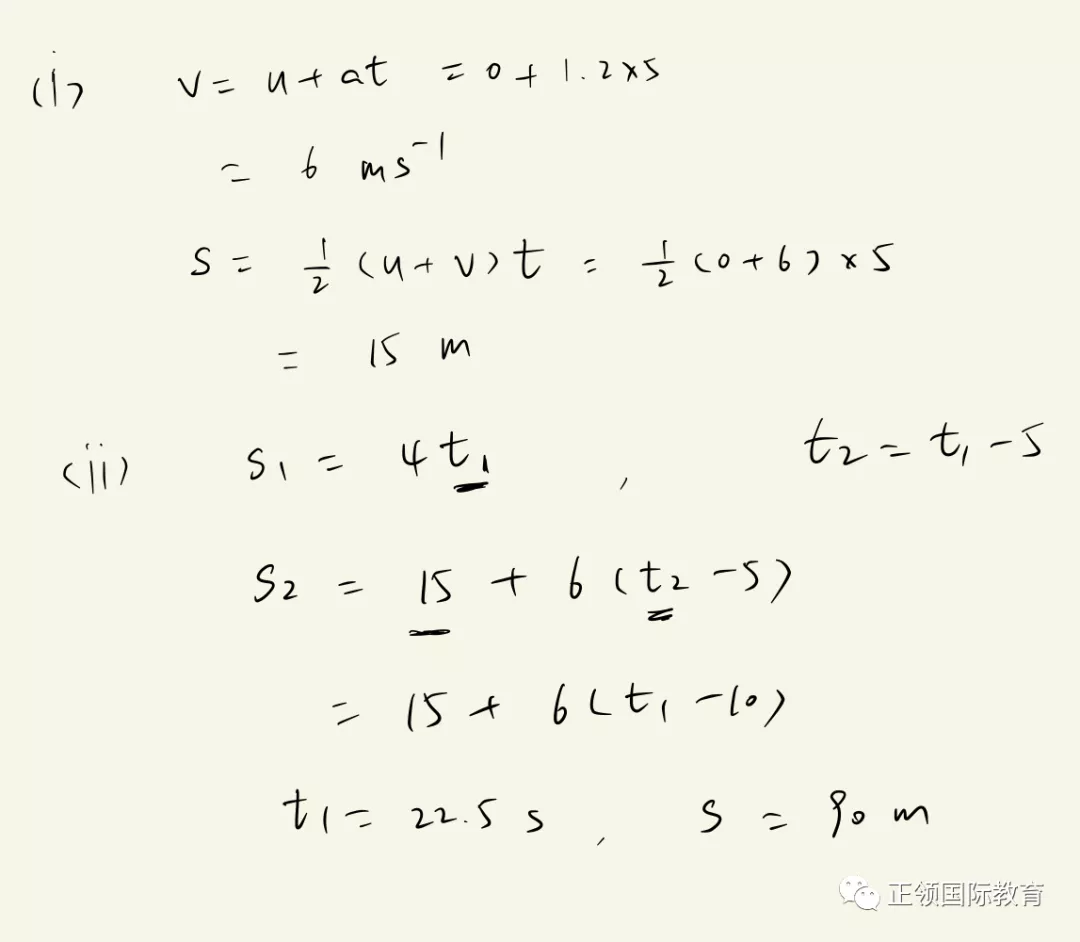 (i) v = u + at = 0 + 1.2 × 5
= 6 ms⁻¹
s = 1/2 (u + v) t = 1/2 (0 + 6) × 5
= 15 m
(ii) s₁ = 4t₁ , t₂ = t₁ - 5
s₂ = 15 + 6 (t₂ - 5)
= 15 + 6 (t₁ - 10)
t₁ = 22.5 s , s = 90 m
正领国际教育